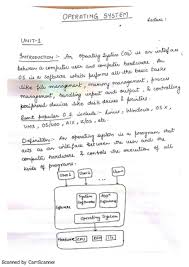 OPERATING SYSTEM
Lecture 1
UNIT-1
INTRODUCTION :- An Operating System (OS) is an interface
between a computer user and computer hardware. An
OS is a software which performs all the basic tasks
like file management, memory management, process
management, handling input and output, & controlling
peripheral devices like disk drives & printers.
Some popular O.S include:- Linux, Windows, OS X,
VMS, OS/400, AIX, z/OS, etc.
Definition:- An operating system is a program that
acts as an interface between the user and the
computer hardware & controls the execution of all
kinds of programs.
User1 User2 User n
Software
System Software
Appn Software
Operating System
Hardware
CPU
RAM
I/O
Scanned by CamScanner